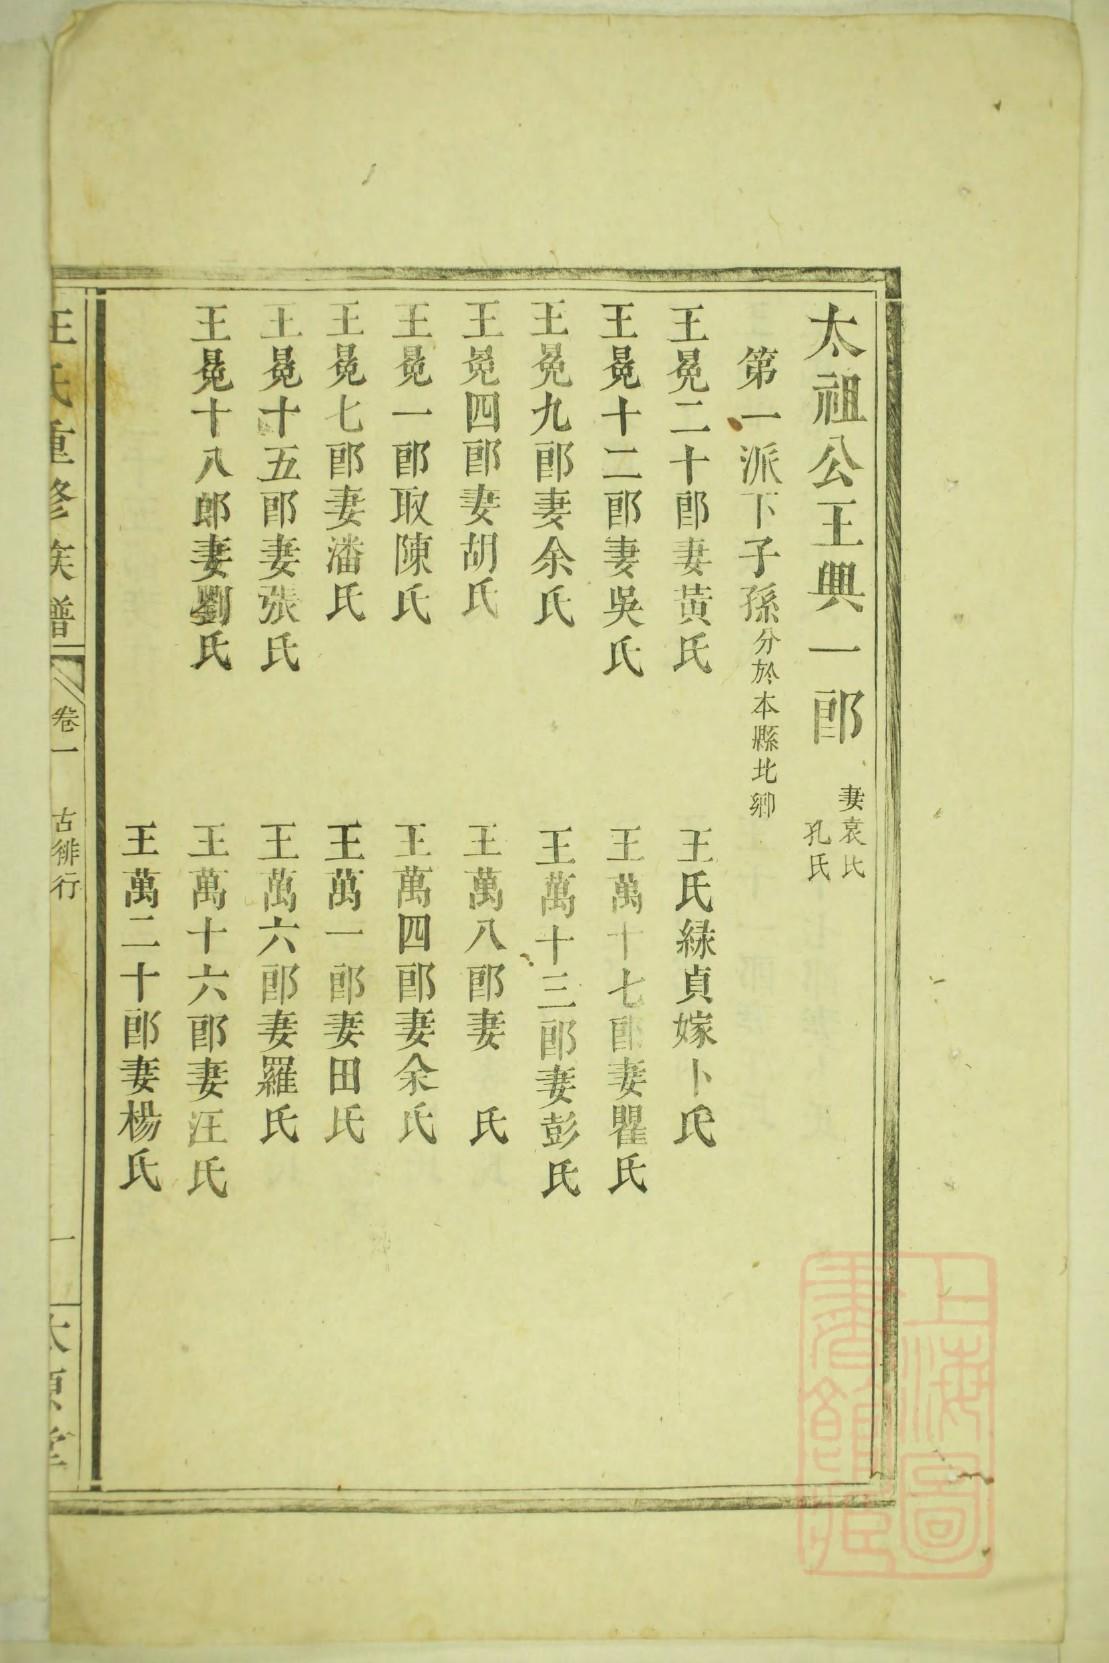 太祖公王興一郎 妻袁氏 孔氏
第一派下子孫分於本縣北鄉
王冕二十郎妻黃氏
王氏緑貞嫁卜氏
王冕十二郎妻吳氏
王萬十七郎妻瞿氏
王冕九郎妻余氏
王萬十三郎妻彭氏
王冕四郎妻胡氏
王萬八郎妻 氏
王冕一郎取陳氏
王萬四郎妻余氏
王冕七郎妻潘氏
王萬一郎妻田氏
王冕十五郎妻張氏
王萬六郎妻羅氏
王冕十八郎妻劉氏
王萬十六郎妻汪氏
王萬二十郎妻楊氏
王氏重修族譜 卷一 古徘行 一 太原堂
上海圖書館藏